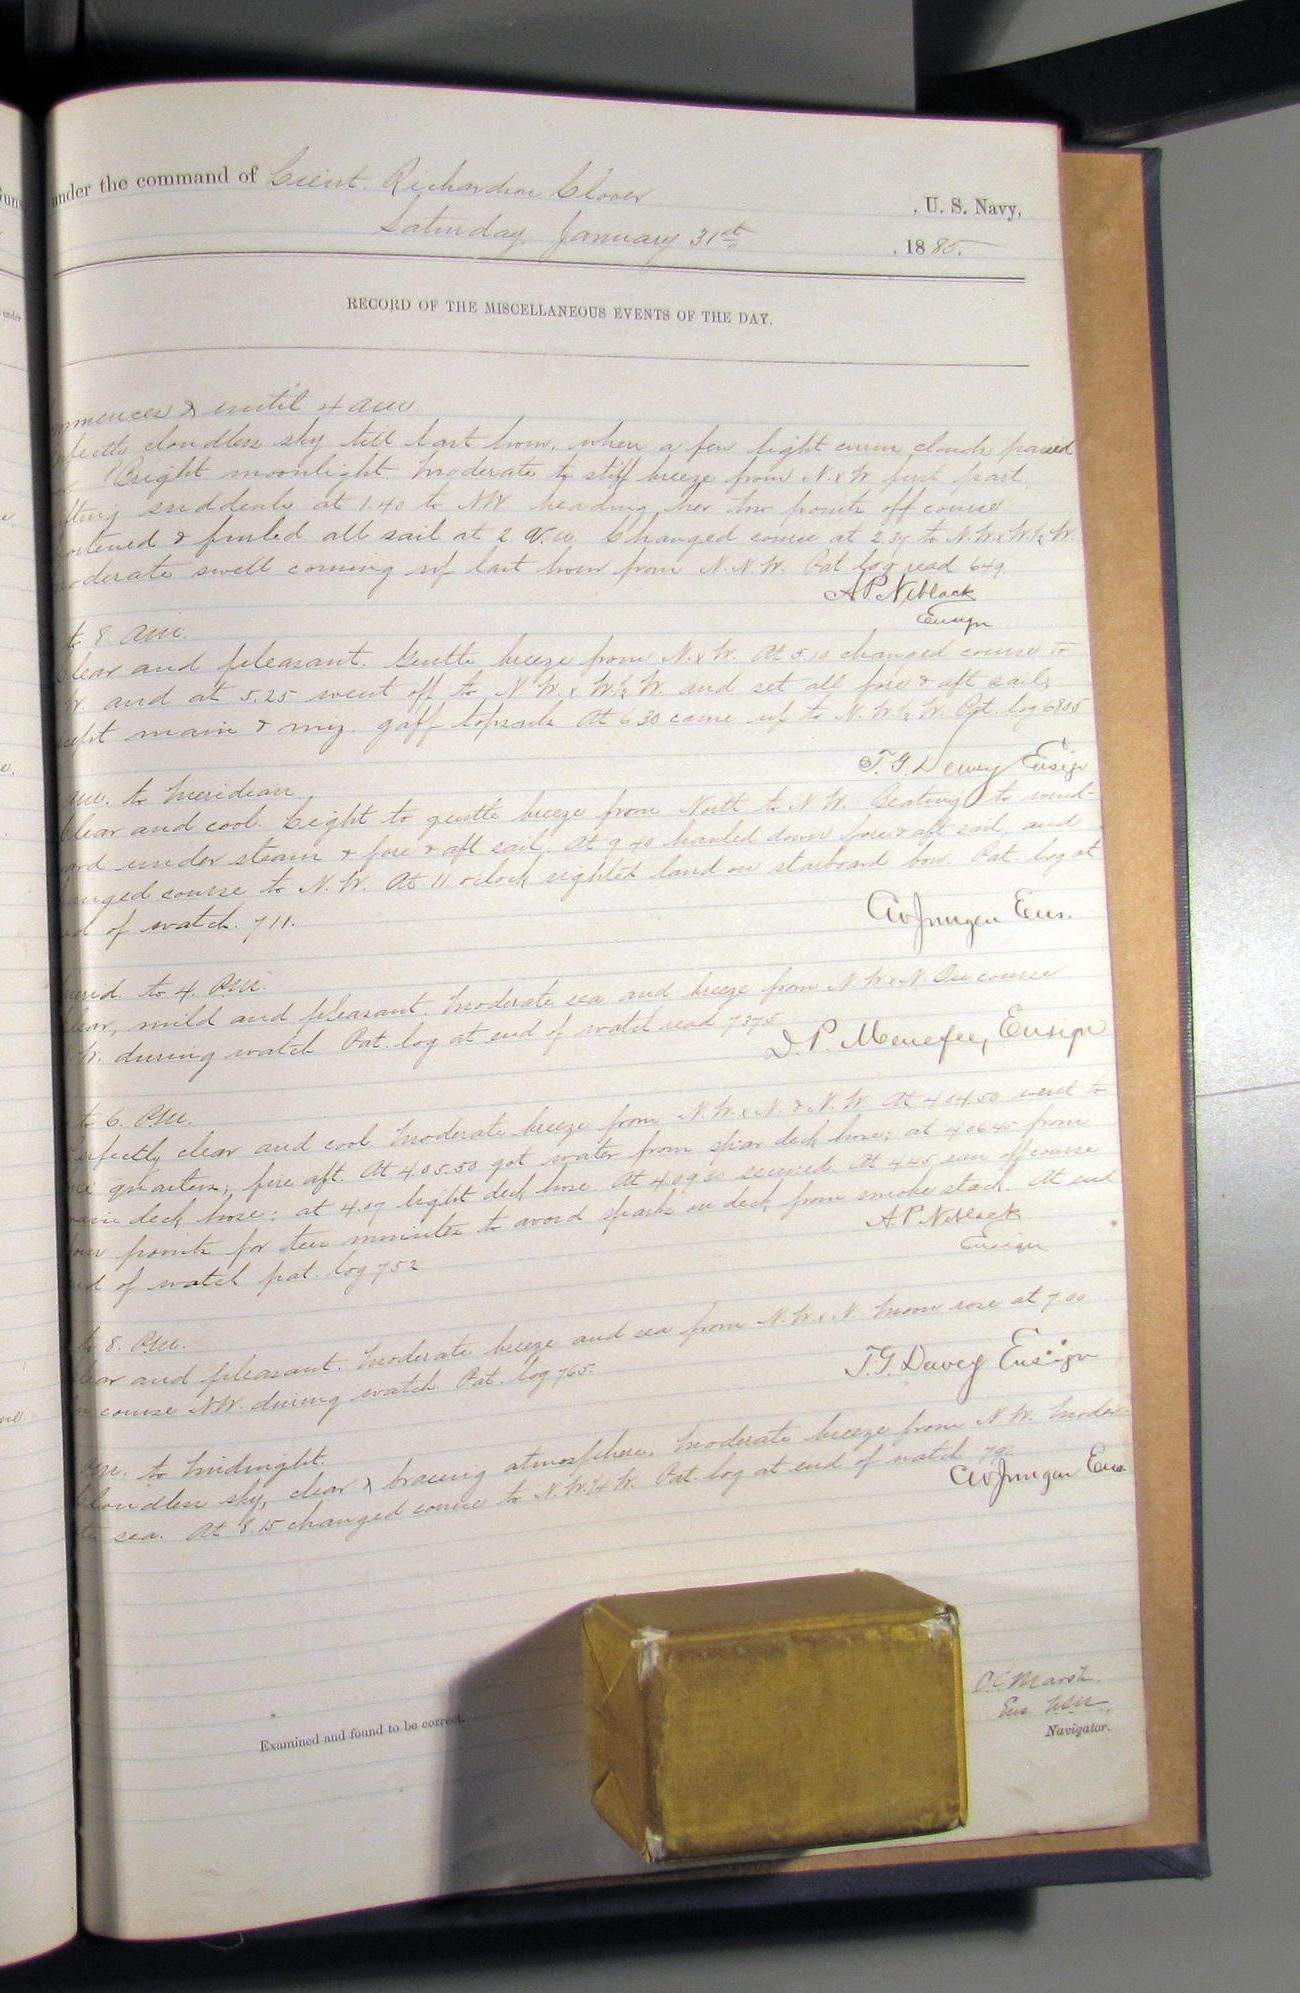 under the command of Lieut. Richardson Clover, U. S. Navy,
Saturday, January 31st, 1885.
RECORD OF THE MISCELLANEOUS EVENTS OF THE DAY.
mmences & until 4 a.m.
rfectly cloudless sky till last hour, when a few light cirrus clouds passed
Bright moonlight. Moderate to stiff breeze from N.x W first part,
fting suddenly at 1.40 to NW. heading her two points off course
ortened & furled all sail at 2 a.m. Changed course at to N.W.x W.½ W.
oderate swell coming up last hour from N.N.W. Pat log read 649
A P Niblack
Ensign
to 8. a.m.
Clear and pleasant. Gentle breeze from N.x W. At 5.10 changed course to
W. and at 5.25 went off to N.W.x W.½ W. and set all fore & aft sails
cept main & miz. gaff topsails. At 6.30 came up to N.W.½ W. Pat. log 680.5
T.G. Dewey Ensign
a.m. to Meridian
Clear and cool. Light to gentle breeze from North to N.W. Beating to wind-
ard under steam & fore & aft sail. At 9.40 hauled down fore & aft sail, and
anged course to N.W. At 11 o'clock sighted land on starboard bow. Pat log at
nd of watch. 711.
C W Jungen Ens.
erid. to 4. P.M.
Clear, mild and pleasant. Moderate sea and breeze from N.W.x N. On course
W. during watch. Pat. log at end of watch read 737.5
D. P. Menefee, Ensign
to 6. P.M.
erfectly clear and cool. Moderate breeze from N.W.x N. & N.W. At 4.04.50 went to
quarters; fire aft. At 4.05.50 got water from spar deck hose; at 4.06.45 from
main deck hose; at 4.07 berth deck hose. At 4.09.30 secured. At 4.45 ran off course
points for ten minutes to avoid sparks on deck from smoke stack. At end
nd of watch pat. log 752
A P Niblack
Ensign
to 8. P.M.
ear and pleasant. Moderate breeze and sea from N.W.x N. Moon rose at 7.00
n course N.W. during watch. Pat. log 765.
T.G. Dewey Ensign
P.M. to Midnight.
Cloudless sky, clear & bracing atmosphere. Moderate breeze from N.W. Moder-
te sea. At 8.15 changed course to N.W.¼ W. Pat. log at end of watch
C W Jungen Ens.
Examined and found to be correct.
C.C. Marsh.
Ens. USN.,
Navigator.